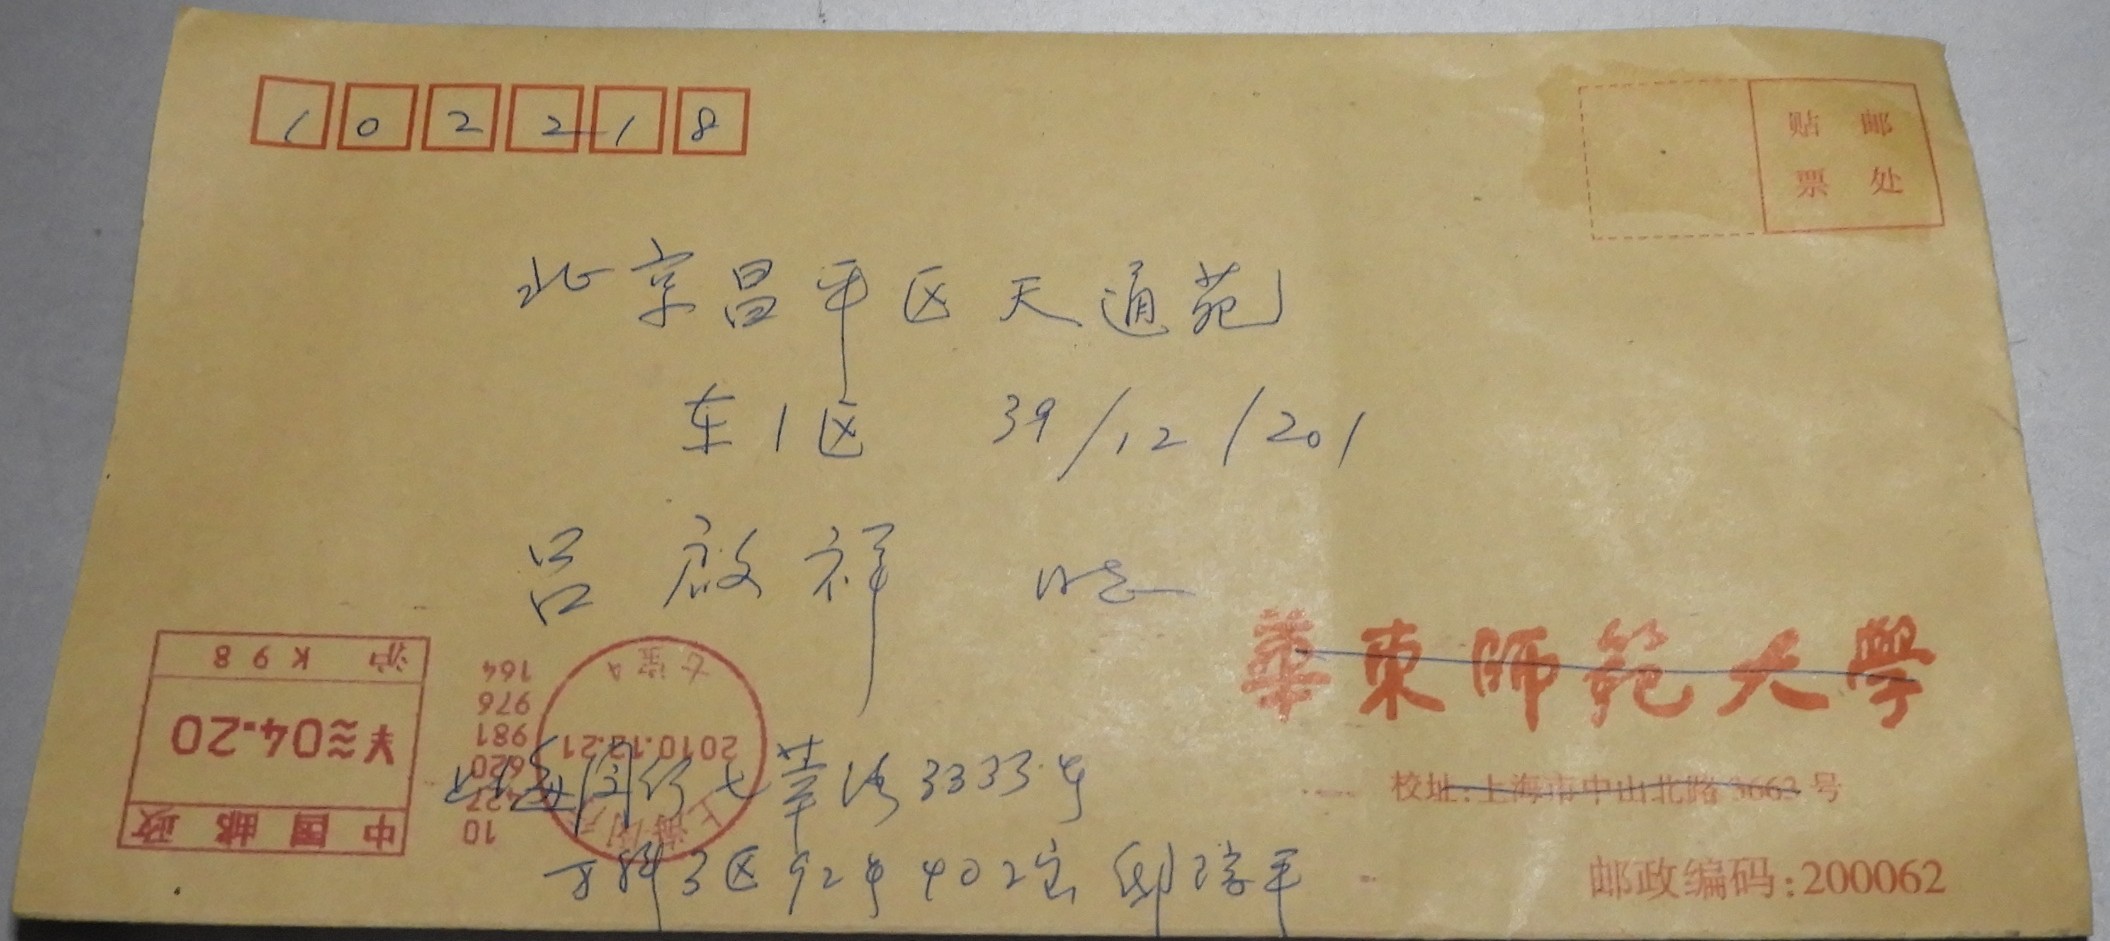 102218
贴 邮
票 处
北京昌平区天通苑
东1区 39/12/201
吕启祥 收
華東師範大學
校址:上海市中山北路3663号
邮政编码:200062
上海闵行七莘路3333号
万科3区92号402室 邸瑞平
沪 K98
¥≈04.20
中国邮政
2010.12.21
上海
164
976
981
620
427
10